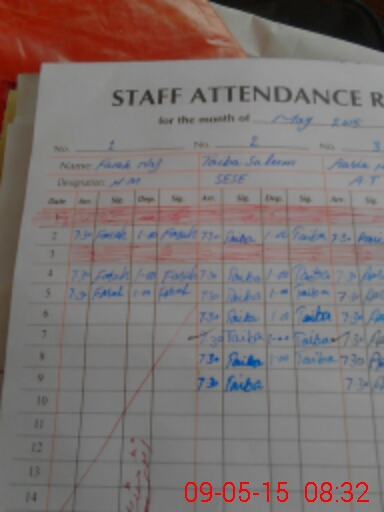 STAFF ATTENDANCE R
for the month of May 2015
No. 1 No. 2 No. 3
Name: Farah Naz Taiba Saleem
Designation: H M SESE A.T
Date Arr. Sig. Dep. Sig. Arr. Sig. Dep. Sig. Arr. Sig.
1
2 7.30 Farah 1-00 Farah 7.30 Taiba 1-00 Taiba 7.30
3
4 7.30 Farah 1-00 Farah 7.30 Taiba 1-00 Taiba 7.30
5 7.30 Farah 1-00 Farah 7.30 Taiba 1-00 Taiba 7.30
6 7.30 Taiba 1-00 Taiba 7.30
7 7.30 Taiba 1-00 Taiba 7.30
8 7.30 Taiba 1-00 Taiba 7.30
9 7.30 Taiba 7.30
10
11
12
13
14
09-05-15 08:32